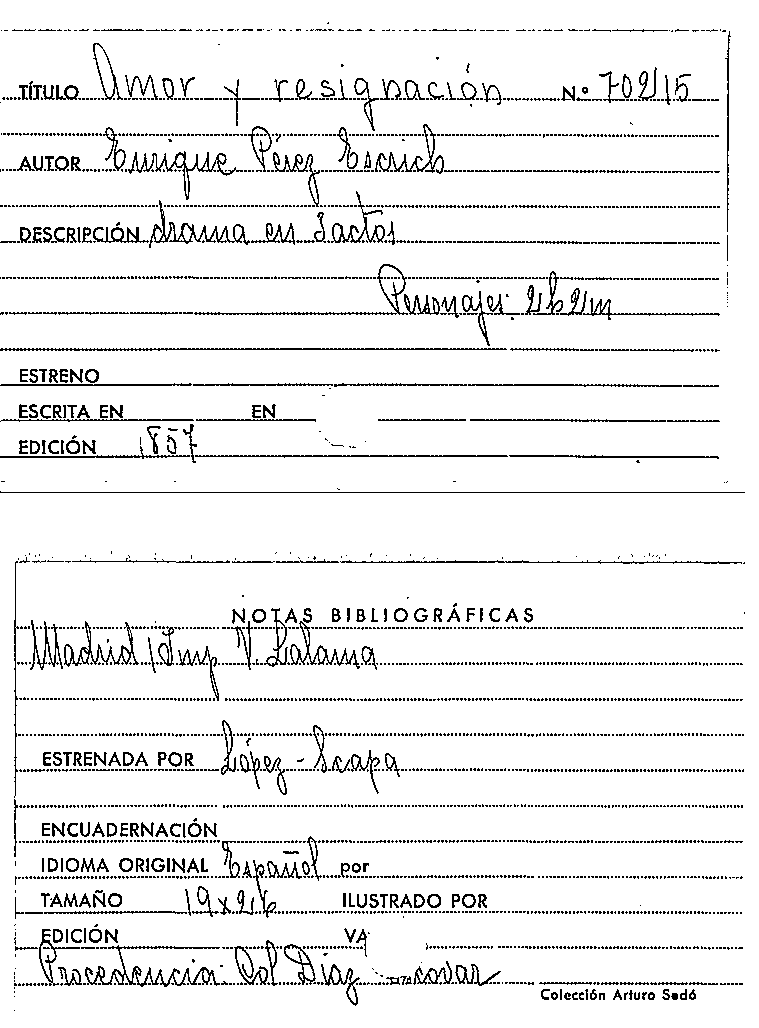 TÍTULO Amor y resignación N.º 702/15
AUTOR Enrique Pérez Escrich
DESCRIPCIÓN drama en 3 actos
Personajes: 2h 2m
ESTRENO
ESCRITA EN EN
EDICIÓN 1857
NOTAS BIBLIOGRÁFICAS
Madrid / Imp V. Lalama
ESTRENADA POR López - Scapa
ENCUADERNACIÓN
IDIOMA ORIGINAL Español por
TAMAÑO 19x26 ILUSTRADO POR
EDICIÓN VA
Procedencia: Col Díaz
Colección Arturo Sedó